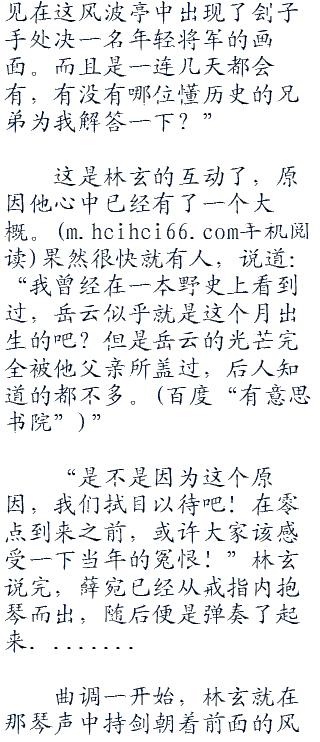 见在这风波亭中出现了刽子
手处决一名年轻将军的画
面。而且是一连几天都会
有，有没有哪位懂历史的兄
弟为我解答一下？”
这是林玄的互动了，原
因他心中已经有了一个大
概。(m.hcihci66.com手机阅
读)果然很快就有人，说道：
“我曾经在一本野史上看到
过，岳云似乎就是这个月出
生的吧？但是岳云的光芒完
全被他父亲所盖过，后人知
道的都不多。(百度“有意思
书院”)”
“是不是因为这个原
因，我们拭目以待吧！在零
点到来之前，或许大家该感
受一下当年的冤恨！”林玄
说完，薛宛已经从戒指内抱
琴而出，随后便是弹奏了起
来．．．．．．．．
曲调一开始，林玄就在
那琴声中持剑朝着前面的风